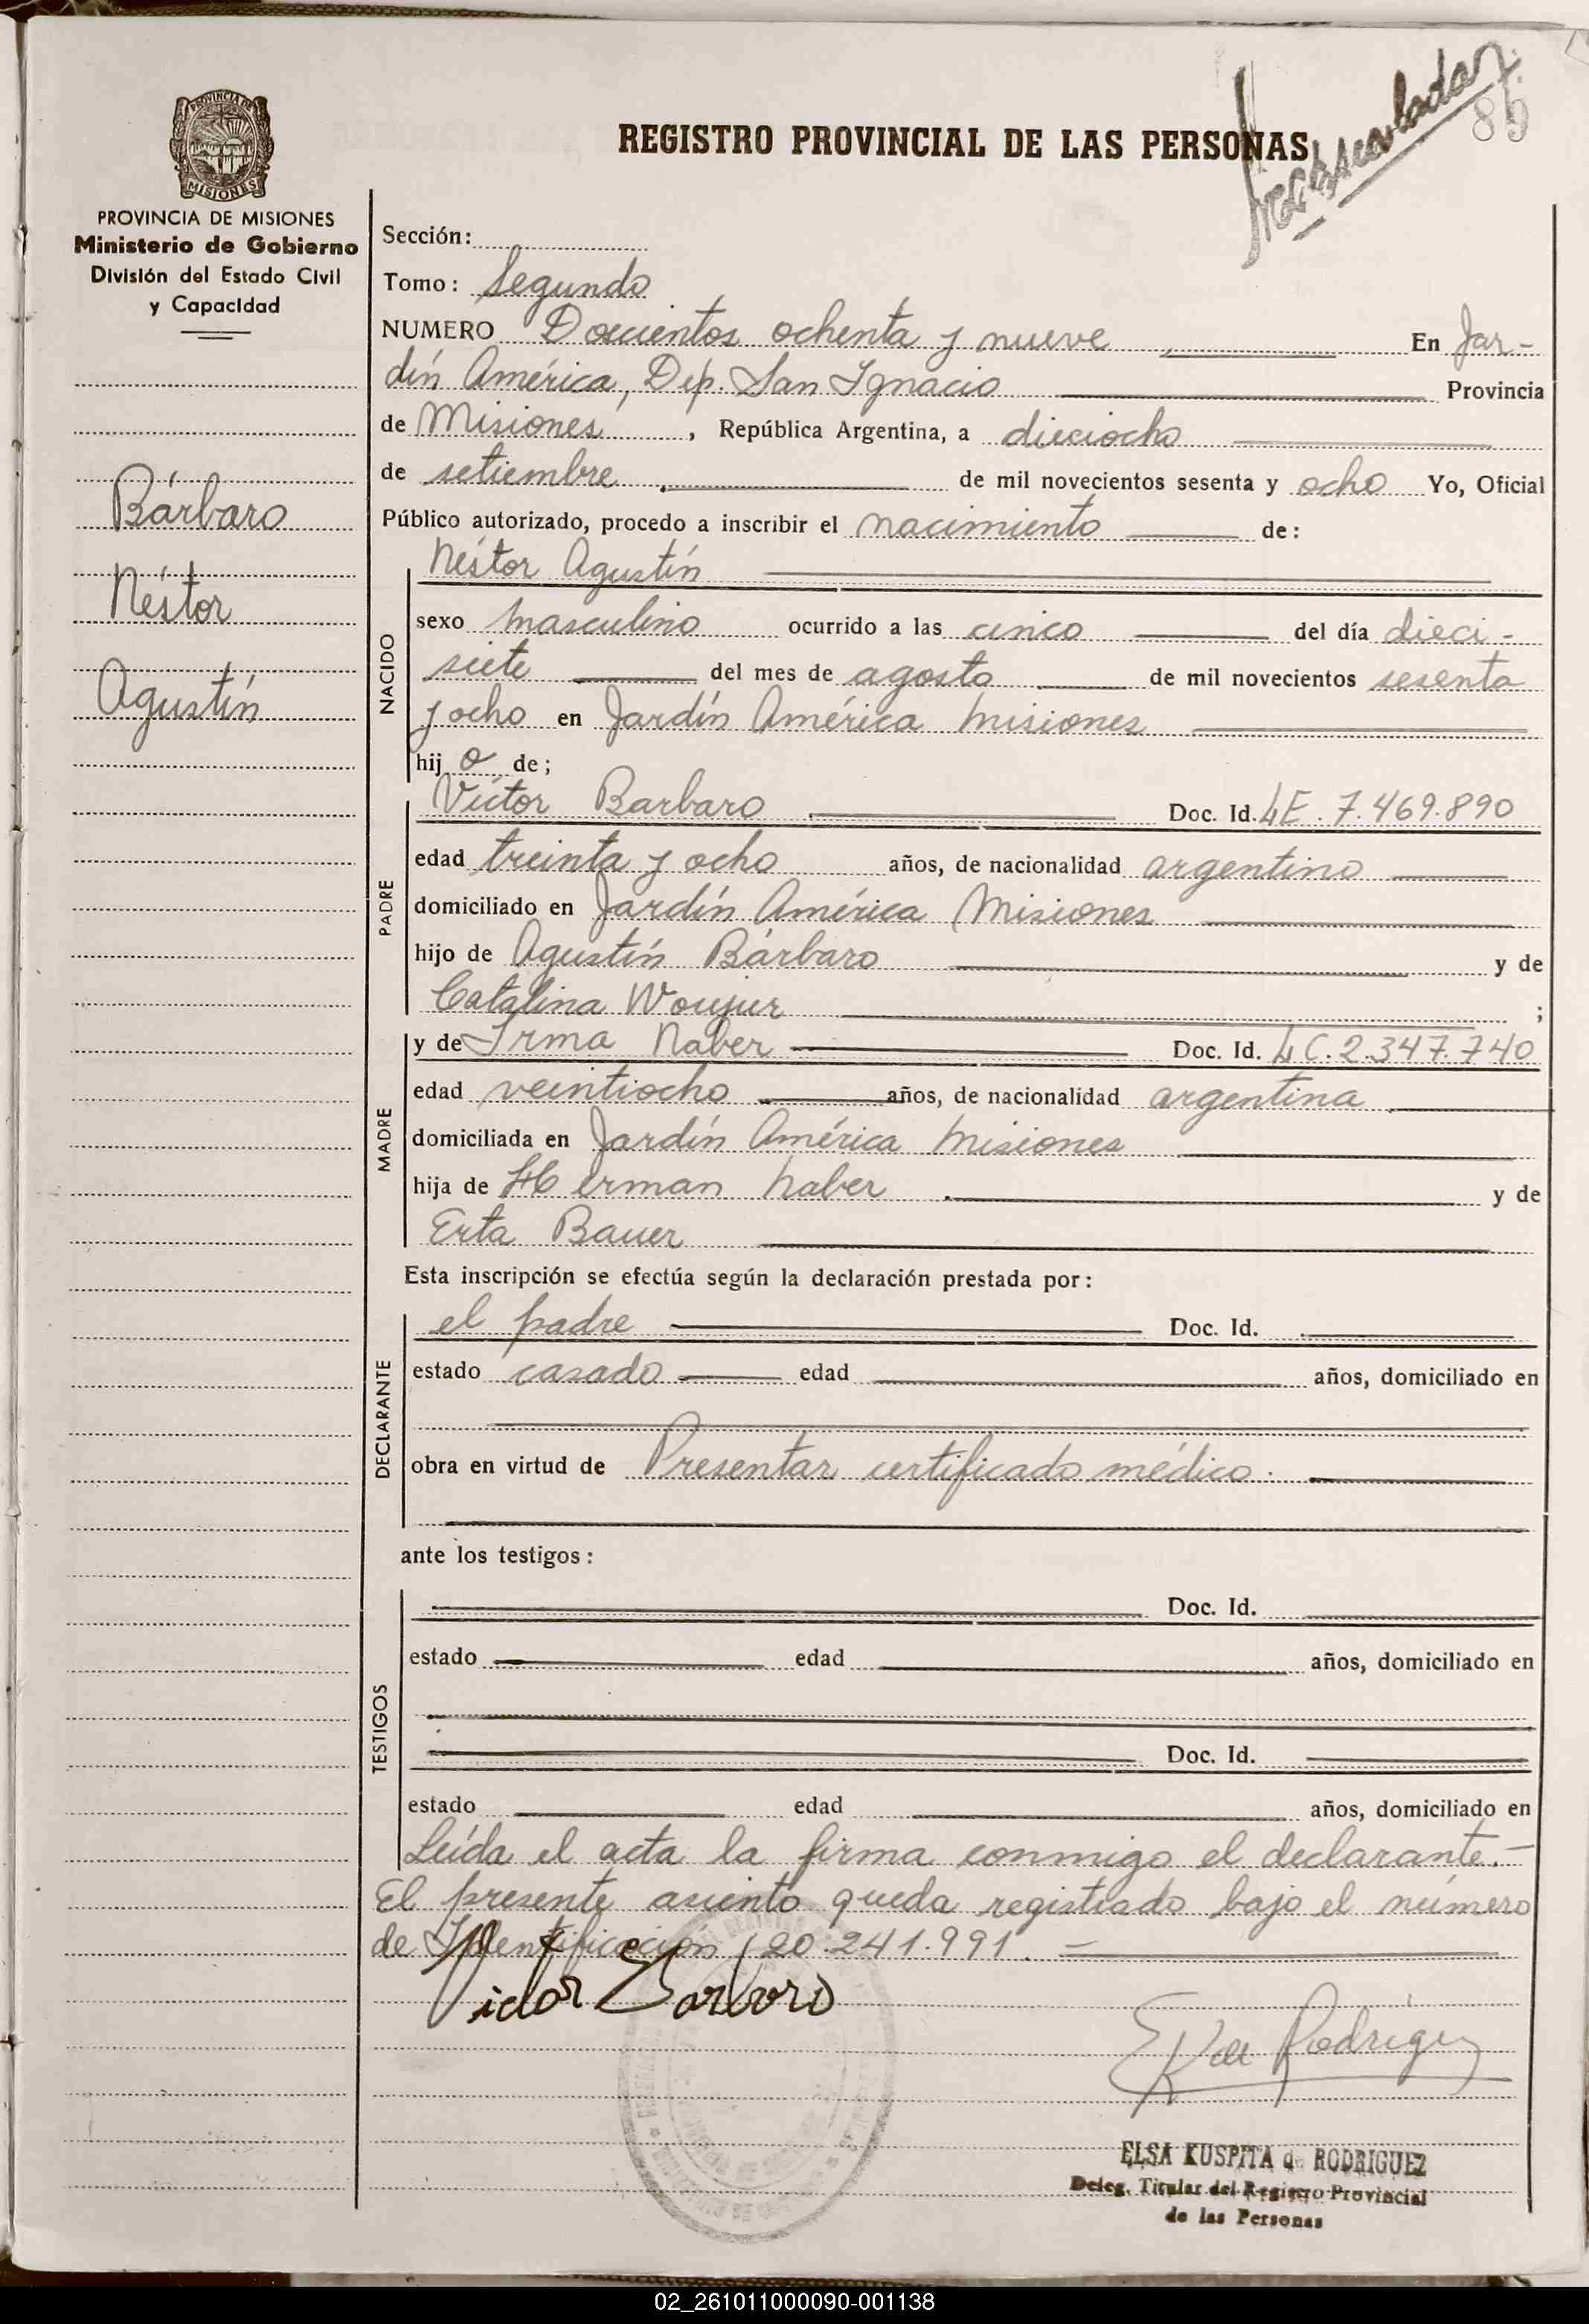 85
REGISTRO PROVINCIAL DE LAS PERSONAS
PROVINCIA DE MISIONES
MISIONES
PROVINCIA DE MISIONES
Ministerio de Gobierno
División del Estado Civil
y Capacidad
Bárbaro
Néstor
Agustín
Sección:
Tomo: Segundo
NUMERO Doscientos ochenta y nueve En Jar-
dín América, Dep. San Ignacio Provincia
de Misiones, República Argentina, a dieciocho
de setiembre de mil novecientos sesenta y ocho Yo, Oficial
Público autorizado, procedo a inscribir el nacimiento de:
NACIDO
Néstor Agustín
sexo masculino ocurrido a las cinco del día dieci-
siete del mes de agosto de mil novecientos sesenta
y ocho en Jardín América Misiones
hijo de;
PADRE
Víctor Barbaro Doc. Id. LE. 7.469.890
edad treinta y ocho años, de nacionalidad argentino
domiciliado en Jardín América Misiones
hijo de Agustín Bárbaro y de
Catalina ;
MADRE
y de Irma Naber Doc. Id. LC. 2.347.740
edad veintiocho años, de nacionalidad argentina
domiciliada en Jardín América Misiones
hija de Herman Naber y de
Erta Bauer
Esta inscripción se efectúa según la declaración prestada por:
DECLARANTE
el padre Doc. Id.
estado casado edad años, domiciliado en
obra en virtud de Presentar certificado médico.
ante los testigos:
TESTIGOS
Doc. Id.
estado edad años, domiciliado en
Doc. Id.
estado edad años, domiciliado en
Leída el acta la firma conmigo el declarante.-
El presente asiento queda registrado bajo el número
de Identificación 20.241.991. -
Victor Barbaro
E K de Rodriguez
ELSA KUSPITA de RODRIGUEZ
Deleg. Titular del Registro Provincial
de las Personas
02_261011000090-001138